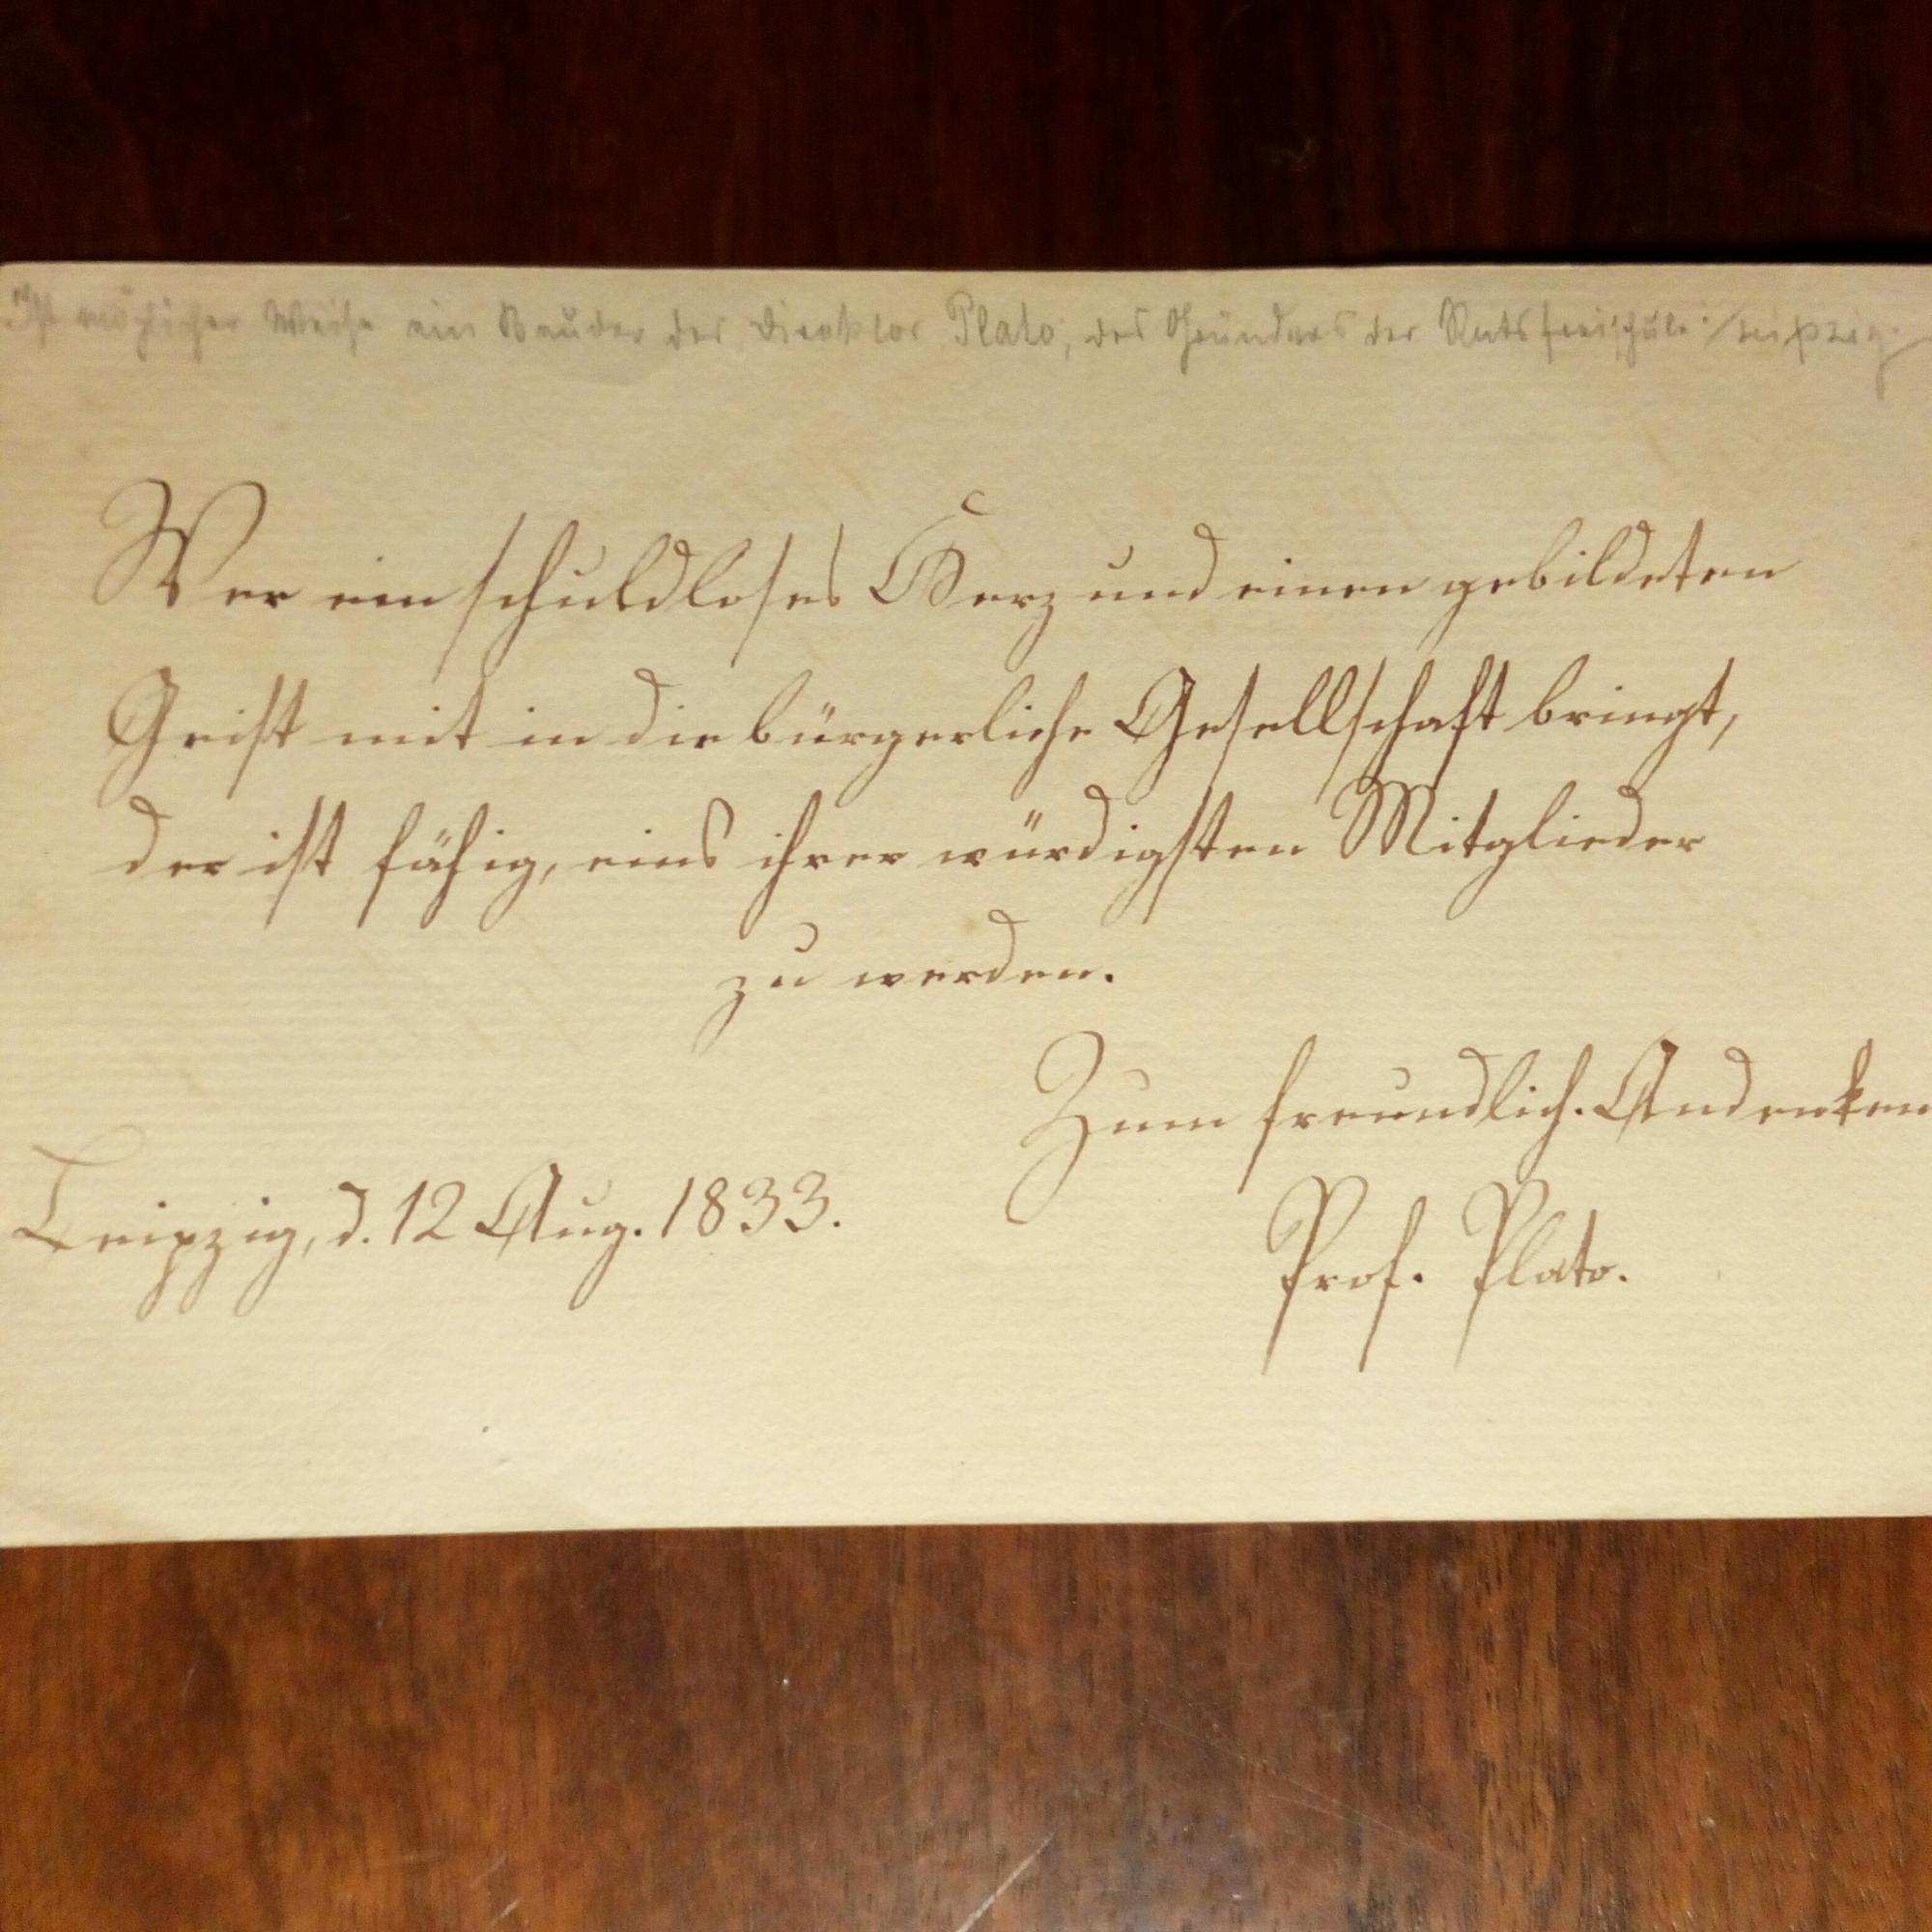 Ist möglicher Weise ein Bruder des Direktor Plato, des Gründers der Ratsfreischule i/Leipzig.
Wer ein schuldloses Herz und einen gebildeten
Geist mit in die bürgerliche Gesellschaft bringt,
der ist fähig, eins ihrer würdigsten Mitglieder
zu werden.
Zum freundlich. Andenken
Leipzig, d. 12 Aug. 1833.
Prof. Plato.